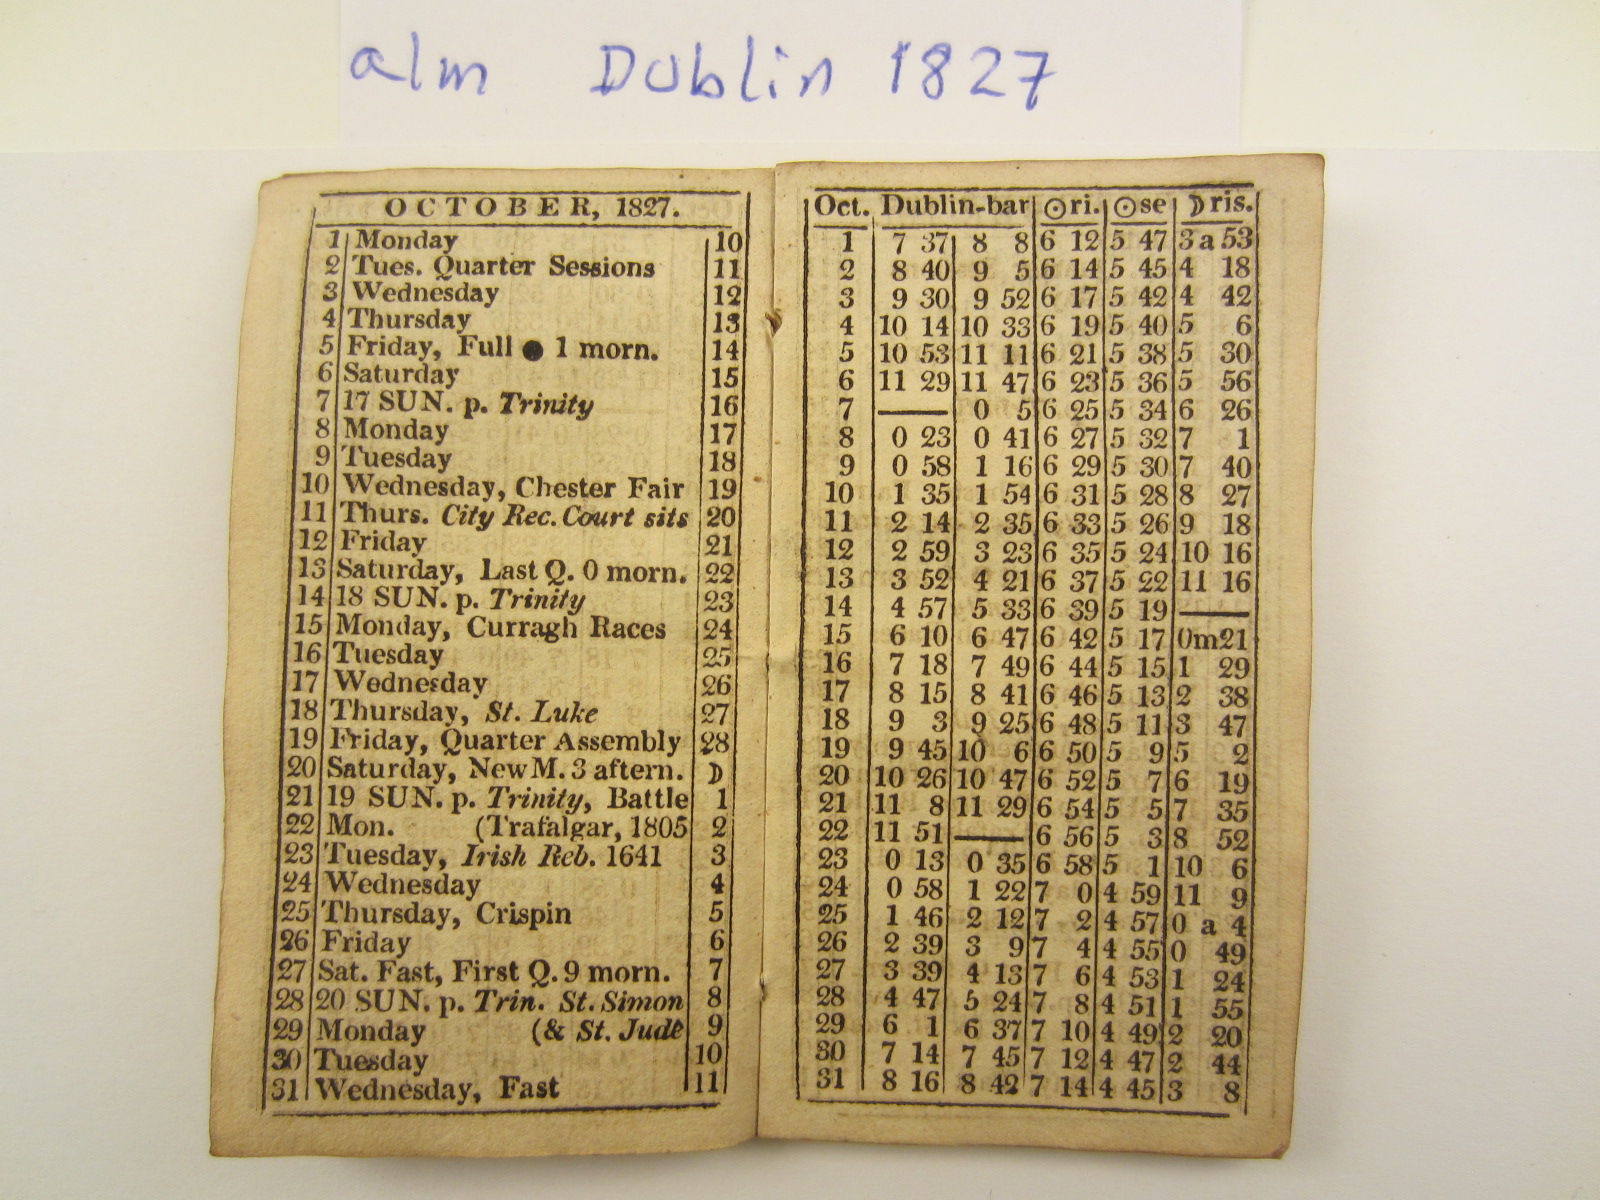 alm Dublin 1827
OCTOBER, 1827.
1 Monday 10
2 Tues. Quarter Sessions 11
3 Wednesday 12
4 Thursday 13
5 Friday, Full ● 1 morn. 14
6 Saturday 15
7 17 SUN. p. Trinity 16
8 Monday 17
9 Tuesday 18
10 Wednesday, Chester Fair 19
11 Thurs. City Rec. Court sits 20
12 Friday 21
13 Saturday, Last Q. 0 morn. 22
14 18 SUN. p. Trinity 23
15 Monday, Curragh Races 24
16 Tuesday 25
17 Wednesday 26
18 Thursday, St. Luke 27
19 Friday, Quarter Assembly 28
20 Saturday, New M. 3 aftern. ☽
21 19 SUN. p. Trinity, Battle 1
22 Mon. (Trafalgar, 1805 2
23 Tuesday, Irish Reb. 1641 3
24 Wednesday 4
25 Thursday, Crispin 5
26 Friday 6
27 Sat. Fast, First Q. 9 morn. 7
28 20 SUN. p. Trin. St. Simon 8
29 Monday (& St. Jude 9
30 Tuesday 10
31 Wednesday, Fast 11
Oct. Dublin-bar ☉ri. ☉se ☽ris.
1 7 37 8 8 6 12 5 47 3 a 53
2 8 40 9 5 6 14 5 45 4 18
3 9 30 9 52 6 17 5 42 4 42
4 10 14 10 33 6 19 5 40 5 6
5 10 53 11 11 6 21 5 38 5 30
6 11 29 11 47 6 23 5 36 5 56
7 — 0 5 6 25 5 34 6 26
8 0 23 0 41 6 27 5 32 7 1
9 0 58 1 16 6 29 5 30 7 40
10 1 35 1 54 6 31 5 28 8 27
11 2 14 2 35 6 33 5 26 9 18
12 2 59 3 23 6 35 5 24 10 16
13 3 52 4 21 6 37 5 22 11 16
14 4 57 5 33 6 39 5 19 —
15 6 10 6 47 6 42 5 17 0m21
16 7 18 7 49 6 44 5 15 1 29
17 8 15 8 41 6 46 5 13 2 38
18 9 3 9 25 6 48 5 11 3 47
19 9 45 10 6 6 50 5 9 5 2
20 10 26 10 47 6 52 5 7 6 19
21 11 8 11 29 6 54 5 5 7 35
22 11 51 — 6 56 5 3 8 52
23 0 13 0 35 6 58 5 1 10 6
24 0 58 1 22 7 0 4 59 11 9
25 1 46 2 12 7 2 4 57 0 a 4
26 2 39 3 9 7 4 4 55 0 49
27 3 39 4 13 7 6 4 53 1 24
28 4 47 5 24 7 8 4 51 1 55
29 6 1 6 37 7 10 4 49 2 20
30 7 14 7 45 7 12 4 47 2 44
31 8 16 8 42 7 14 4 45 3 8